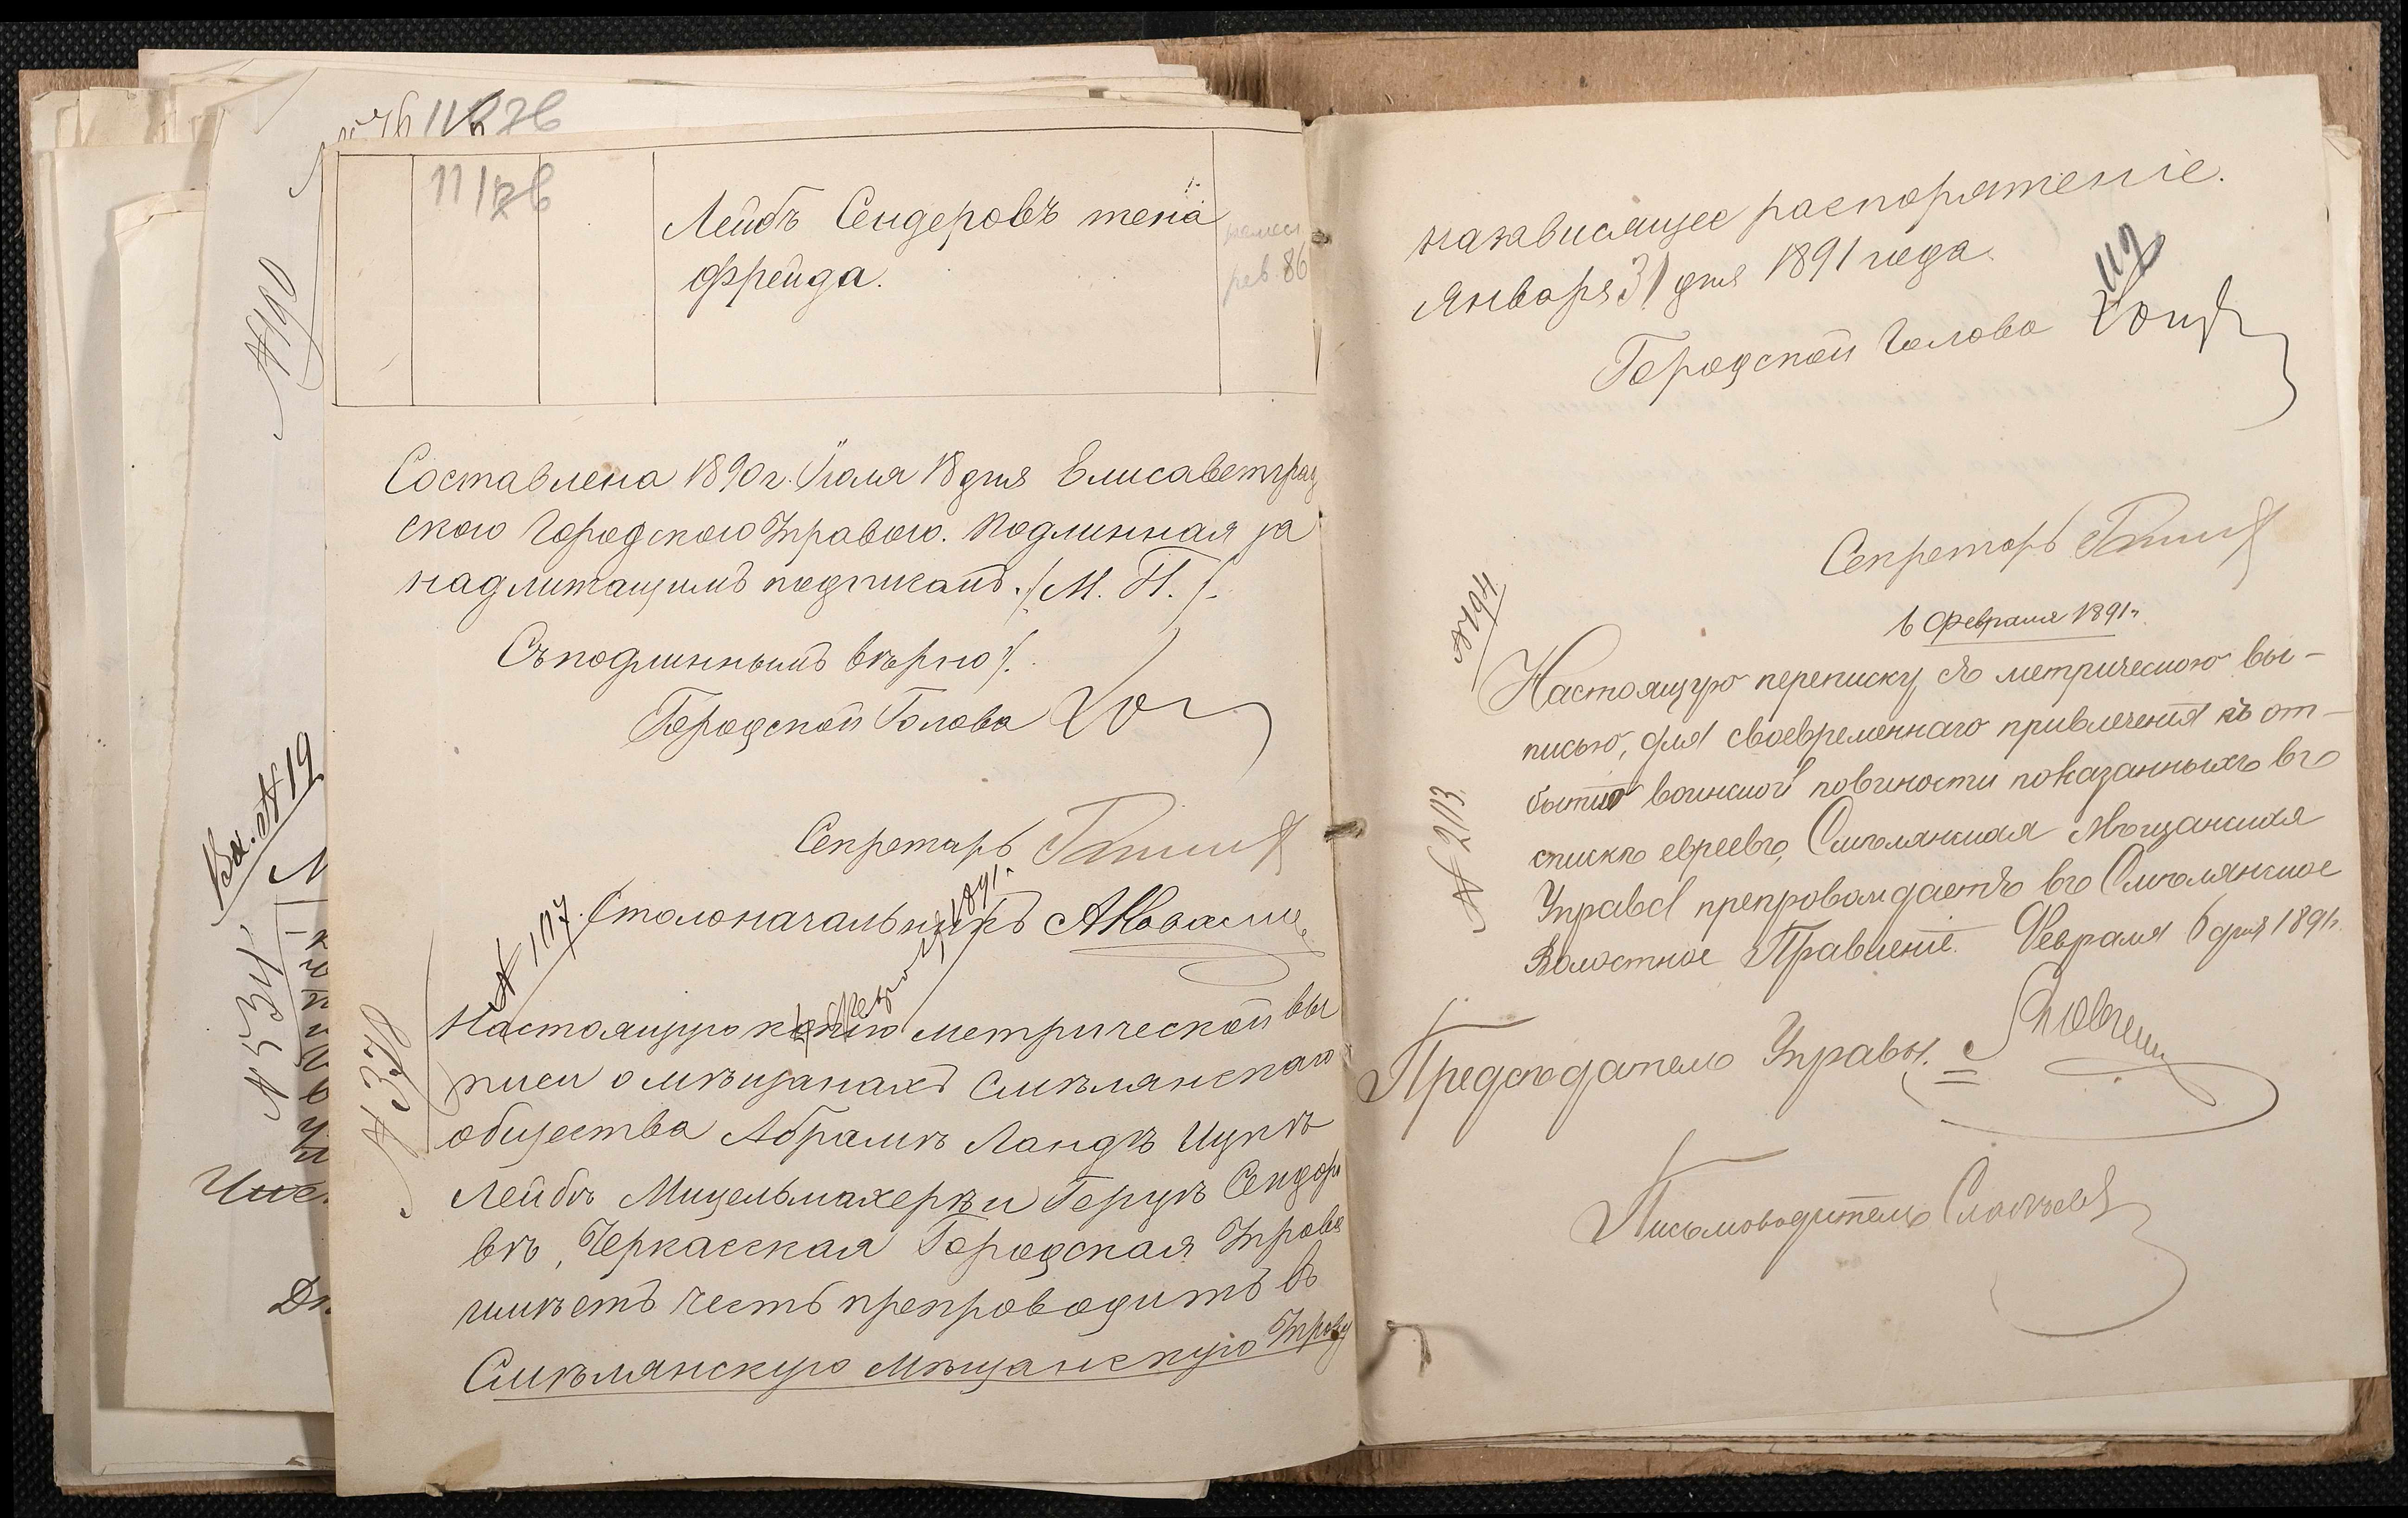 № 190
Вх. № 19
№ 534
11/726
Лейбъ Сендеровъ жена
Фрейда.
рев. 86
Составлена 1890 г. Іюля 18 дня Елисаветград
скою Городскою Управою. Подлинная за
надлежащимъ подписомъ. /М. П./.
Съ подлиннымъ вѣрно:
Городской Голова
Секретарь
Столоначальникъ
№ 107
1891 г.
№ 378
Настоящую копію метрической вы
писи о мѣщанахъ Смѣлянскаго
общества Абрамѣ Ландѣ Ицкѣ
Лейбѣ Мицельмахерѣ и Герцѣ Сендоро
вѣ, Черкасская Городская Управа
имѣетъ честь препроводить въ
Смѣлянскую Мѣщанскую Управу
на зависящее распоряженіе.
Января 31 дня 1891 года.
112
Городской Голова
Секретарь
№ 194
6 Февраля 1891 г.
Настоящую переписку съ метрическою вы-
писью, для своевременнаго привлеченія къ от-
бытію воинской повиности показанныхъ въ
№ 2113
спискѣ евреевъ, Смѣлянская Мѣщанская
Управа препровождаетъ въ Смѣлянское
Волостное Правленіе. Февраля 6 дня 1891 г.
Предсѣдатель Управы
Письмоводитель